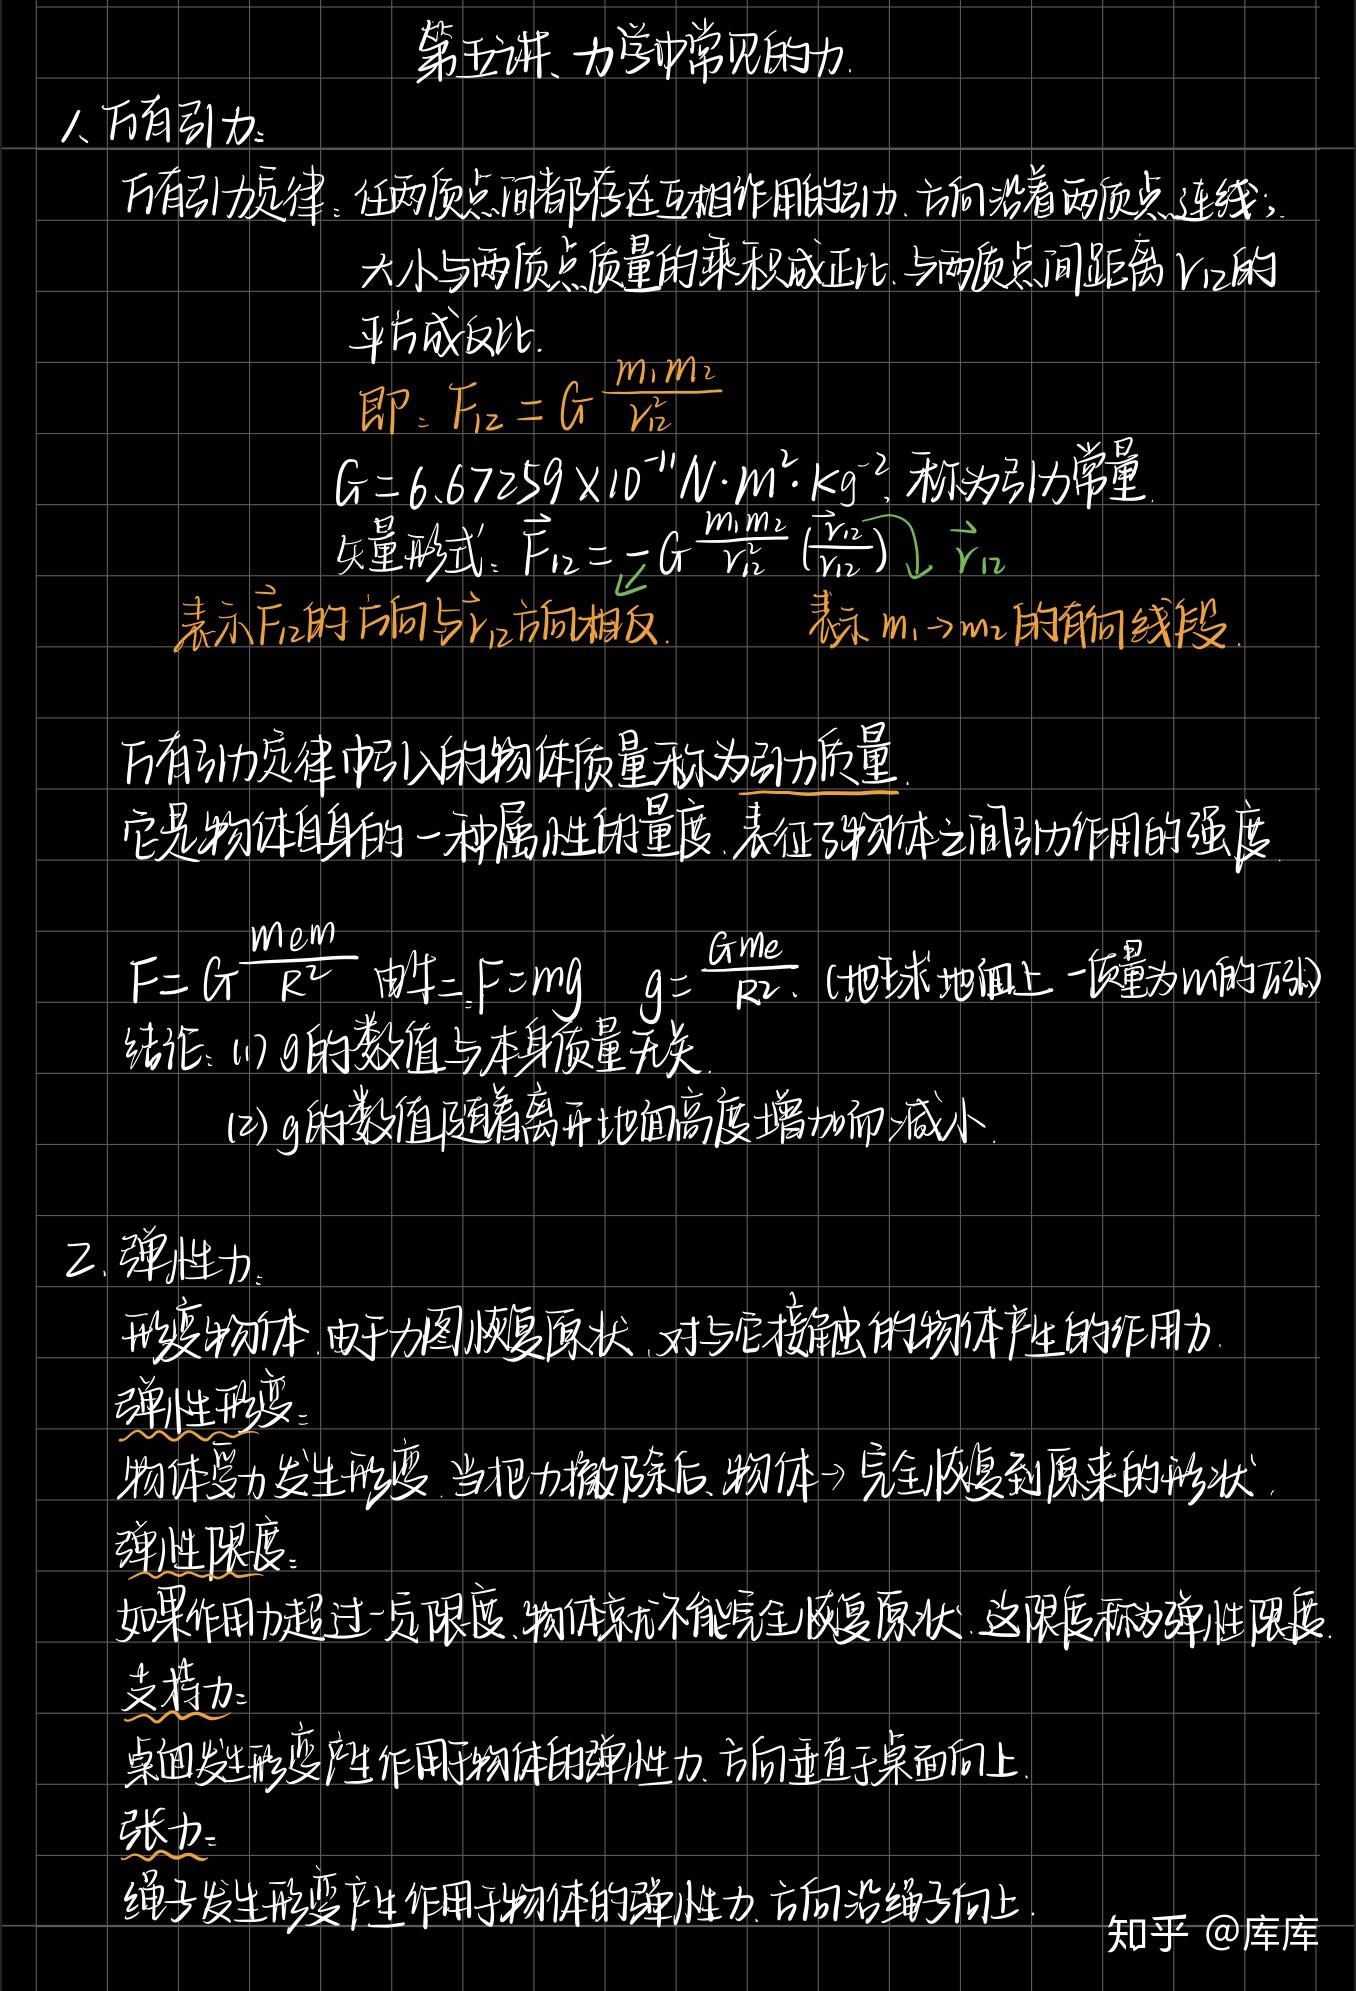 第五讲、力学中常见的力.
1、万有引力:
万有引力定律: 任两质点间都存在互相作用的引力、方向沿着两质点连线;
大小与两质点质量的乘积成正比、与两质点间距离 r₁₂的
平方成反比.
即: F₁₂ = G m₁m₂/r₁₂²
G=6.67259×10⁻¹¹N·m²·kg⁻², 称为引力常量.
矢量形式: F⃗₁₂ = -G m₁m₂/r₁₂² (r⃗₁₂/r₁₂) r⃗₁₂
表示F⃗₁₂的方向与r⃗₁₂方向相反. 表示 m₁→m₂的有向线段.
万有引力定律中引入的物体质量称为引力质量.
它是物体自身的一种属性的量度、表征了物体之间引力作用的强度.
F=G mem/R² 由牛二: F=mg g=Gme/R². (地球地面上一质量为m的万引)
结论: (1) g的数值与本身质量无关.
(2) g的数值随着离开地面高度增加而减小.
2. 弹性力:
形变物体、由于力图恢复原状、对与它接触的物体产生的作用力.
弹性形变:
物体受力发生形变、当把力撤除后、物体→完全恢复到原来的形状.
弹性限度:
如果作用力超过一定限度、物体就不能完全恢复原状、这限度称为弹性限度.
支持力:
桌面发生形变产生作用于物体的弹性力、方向垂直于桌面向上.
张力:
绳子发生形变产生作用于物体的弹性力、方向沿绳子向上.
知乎 @库库